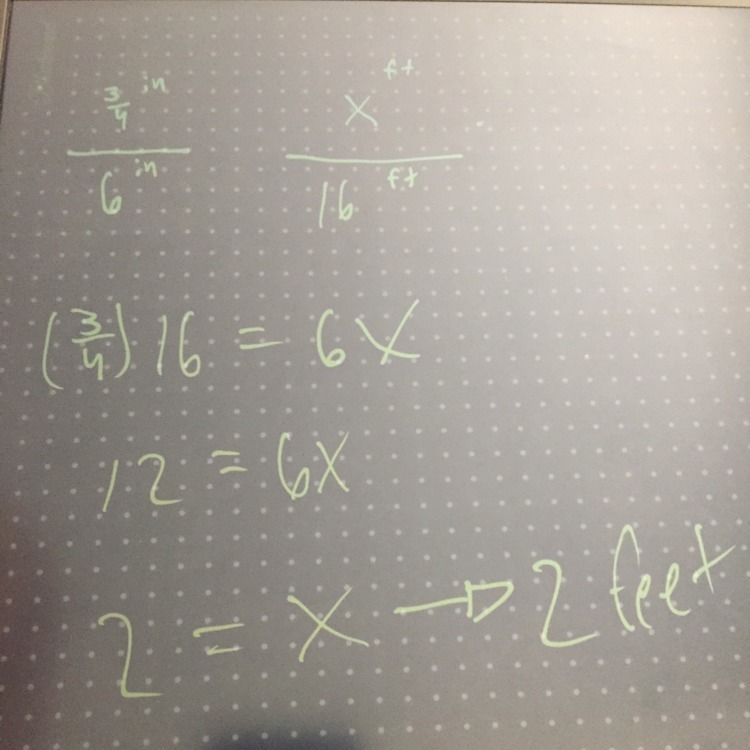 3/4 in x ft
6 in 16 ft
(3/4) 16 = 6x
12 = 6x
2 = x → 2 feet